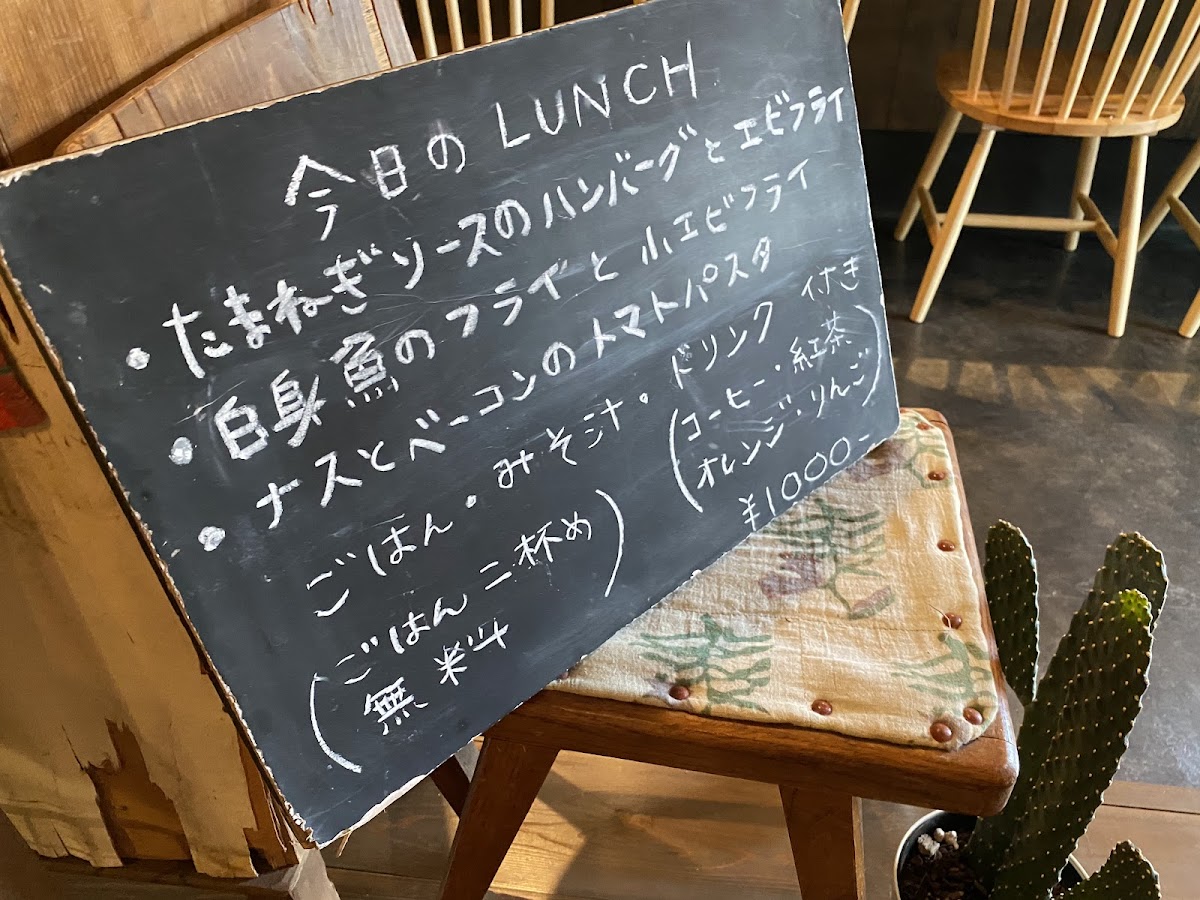 今日のLUNCH
・たまねぎソースのハンバーグとエビフライ
・白身魚のフライと小エビフライ
・ナスとベーコンのトマトパスタ
ごはん・みそ汁・ドリンク付き
(コーヒー・紅茶
オレンジ・りんご)
(ごはん二杯め
無料)
¥1000-